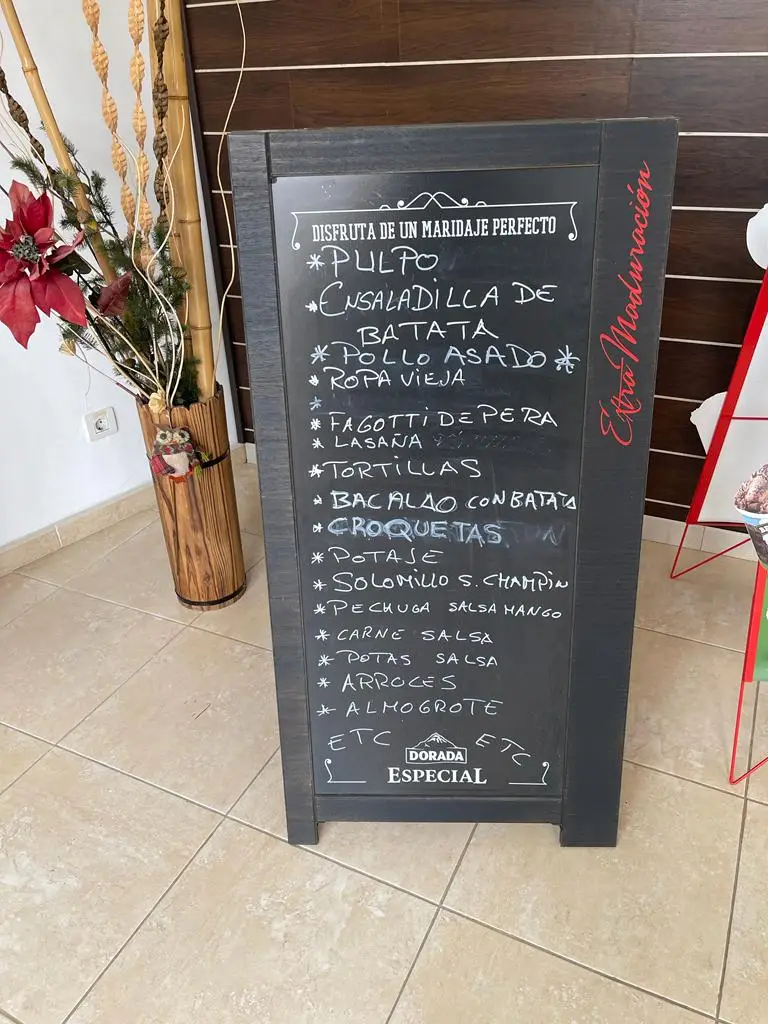 DISFRUTA DE UN MARIDAJE PERFECTO
* PULPO
* ENSALADILLA DE
BATATA
* POLLO ASADO *
* ROPA VIEJA
*
* FAGOTTI DE PERA
* LASAÑA
* TORTILLAS
* BACALAO CON BATATA
* CROQUETAS
* POTAJE
* SOLOMILLO S. CHAMPIN
* PECHUGA SALSA MANGO
* CARNE SALSA
* POTAS SALSA
* ARROCES
* ALMOGROTE
ETC ETC
DORADA
ESPECIAL
Extra Maduración